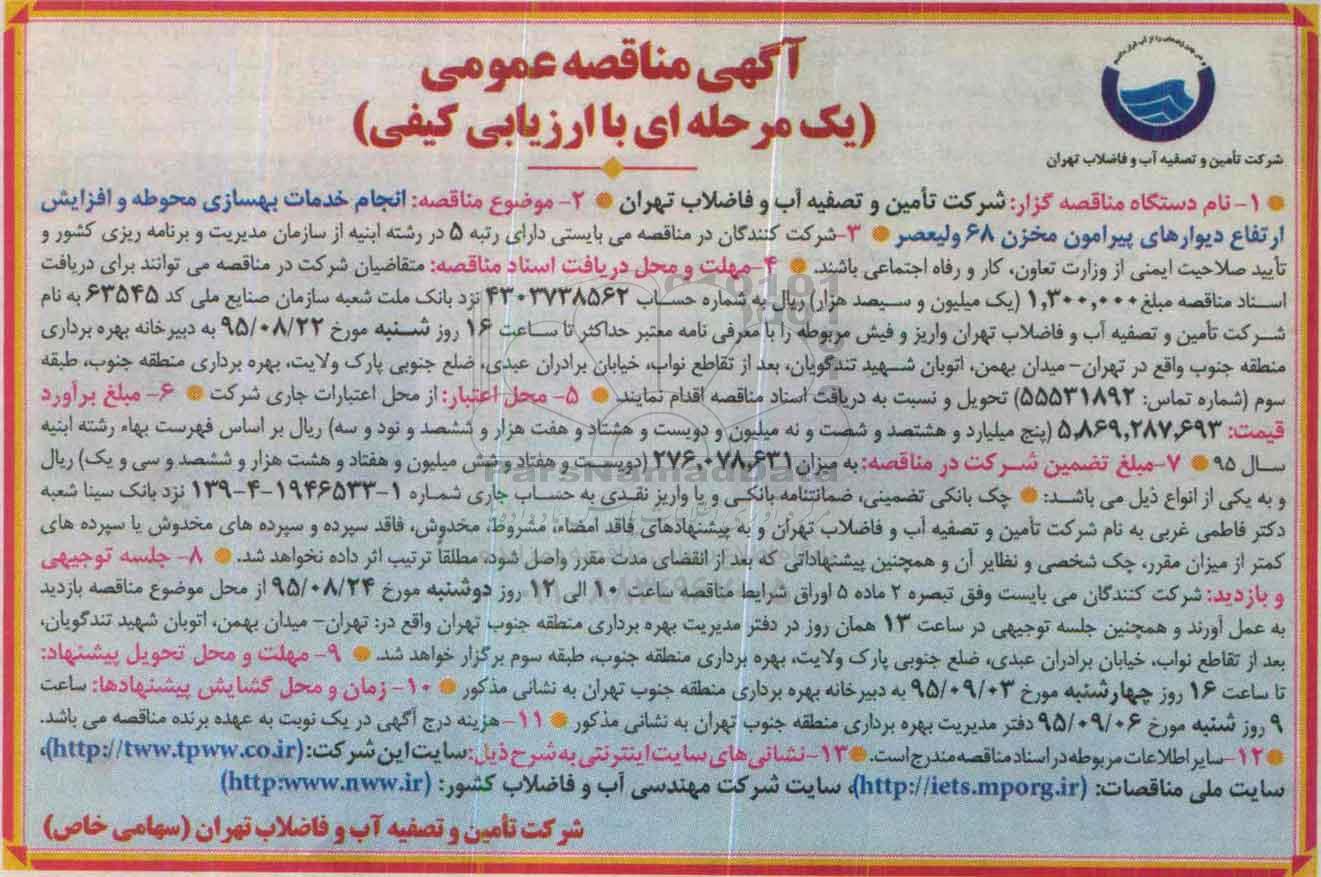 آگهی مناقصه عمومی
(یک مرحله ای با ارزیابی کیفی)
شرکت تأمین و تصفیه آب و فاضلاب تهران
۱- نام دستگاه مناقصه گزار: شرکت تأمین و تصفیه آب و فاضلاب تهران ● ۲- موضوع مناقصه: انجام خدمات بهسازی محوطه و افزایش
ارتفاع دیوارهای پیرامون مخزن ۶۸ ولیعصر ● ۳-شرکت کنندگان در مناقصه می بایستی دارای رتبه ۵ در رشته ابنیه از سازمان مدیریت و برنامه ریزی کشور و
تأیید صلاحیت ایمنی از وزارت تعاون، کار و رفاه اجتماعی باشند. ● ۴-مهلت و محل دریافت اسناد مناقصه: متقاضیان شرکت در مناقصه می توانند برای دریافت
اسناد مناقصه مبلغ ۱,۳۰۰,۰۰۰ (یک میلیون و سیصد هزار) ریال به شماره حساب ۴۳۰۳۷۳۸۵۶۲ نزد بانک ملت شعبه سازمان صنایع ملی کد ۶۳۵۴۵ به نام
شرکت تأمین و تصفیه آب و فاضلاب تهران واریز و فیش مربوطه را با معرفی نامه معتبر حداکثر تا ساعت ۱۶ روز شنبه مورخ ۹۵/۰۸/۲۲ به دبیرخانه بهره برداری
منطقه جنوب واقع در تهران- میدان بهمن، اتوبان شهید تندگویان، بعد از تقاطع نواب، خیابان برادران عبدی، ضلع جنوبی پارک ولایت، بهره برداری منطقه جنوب، طبقه
سوم (شماره تماس: ۵۵۵۳۱۸۹۲) تحویل و نسبت به دریافت اسناد مناقصه اقدام نمایند. ● ۵- محل اعتبار: از محل اعتبارات جاری شرکت ● ۶- مبلغ برآورد
قیمت: ۵,۸۶۹,۲۸۷,۶۹۳ (پنج میلیارد و هشتصد و شصت و نه میلیون و دویست و هشتاد و هفت هزار و ششصد و نود و سه) ریال بر اساس فهرست بهاء رشته ابنیه
سال ۹۵ ● ۷-مبلغ تضمین شرکت در مناقصه: به میزان ۲۷۶,۰۷۸,۶۳۱ (دویست و هفتاد و شش میلیون و هفتاد و هشت هزار و ششصد و سی و یک) ریال
و به یکی از انواع ذیل می باشد: ● چک بانکی تضمینی، ضمانتنامه بانکی و یا واریز نقدی به حساب جاری شماره ۱-۱۹۴۶۵۳۳-۴-۱۳۹ نزد بانک سینا شعبه
دکتر فاطمی غربی به نام شرکت تأمین و تصفیه آب و فاضلاب تهران و به پیشنهادهای فاقد امضاء، مشروط، مخدوش، فاقد سپرده و سپرده های مخدوش یا سپرده های
کمتر از میزان مقرر، چک شخصی و نظایر آن و همچنین پیشنهاداتی که بعد از انقضای مدت مقرر واصل شود، مطلقا ترتیب اثر داده نخواهد شد. ● ۸- جلسه توجیهی
و بازدید: شرکت کنندگان می بایست وفق تبصره ۲ ماده ۵ اوراق شرایط مناقصه ساعت ۱۰ الی ۱۲ روز دوشنبه مورخ ۹۵/۰۸/۲۴ از محل موضوع مناقصه بازدید
به عمل آورند و همچنین جلسه توجیهی در ساعت ۱۳ همان روز در دفتر مدیریت بهره برداری منطقه جنوب تهران واقع در: تهران- میدان بهمن، اتوبان شهید تندگویان،
بعد از تقاطع نواب، خیابان برادران عبدی، ضلع جنوبی پارک ولایت، بهره برداری منطقه جنوب، طبقه سوم برگزار خواهد شد. ● ۹- مهلت و محل تحویل پیشنهاد:
تا ساعت ۱۶ روز چهارشنبه مورخ ۹۵/۰۹/۰۳ به دبیرخانه بهره برداری منطقه جنوب تهران به نشانی مذکور ● ۱۰- زمان و محل گشایش پیشنهادها: ساعت
۹ روز شنبه مورخ ۹۵/۰۹/۰۶ دفتر مدیریت بهره برداری منطقه جنوب تهران به نشانی مذکور ● ۱۱-هزینه درج آگهی در یک نوبت به عهده برنده مناقصه می باشد.
● ۱۲-سایر اطلاعات مربوطه در اسناد مناقصه مندرج است. ● ۱۳-نشانی های سایت اینترنتی به شرح ذیل: سایت این شرکت: (http://tww.tpww.co.ir)،
سایت ملی مناقصات: (http://iets.mporg.ir)، سایت شرکت مهندسی آب و فاضلاب کشور: (http:www.nww.ir)
شرکت تأمین و تصفیه آب و فاضلاب تهران (سهامی خاص)
ParsNamadData